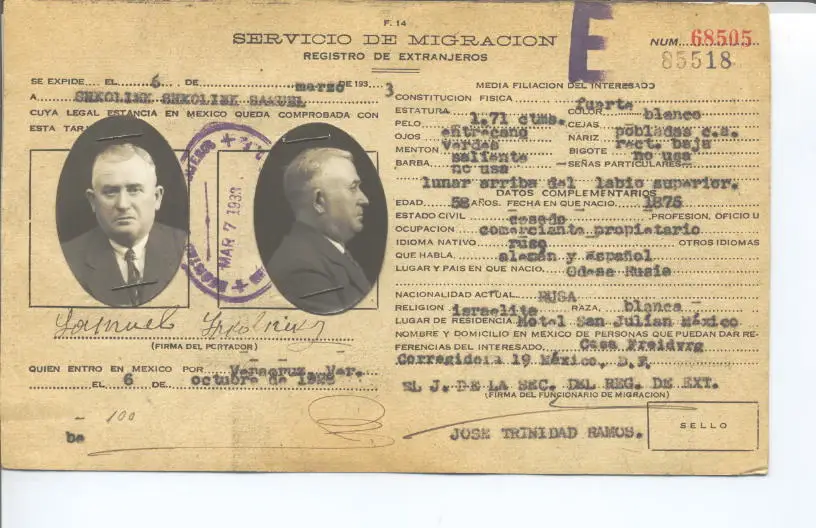 F. 14
SERVICIO DE MIGRACION
REGISTRO DE EXTRANJEROS
E
NUM. 68505
85518
SE EXPIDE EL 6 DE marzo DE 193 3
A SHKOLINK SHKOLINK SAMUEL
CUYA LEGAL ESTANCIA EN MEXICO QUEDA COMPROBADA CON
ESTA TAR
MAR 7 1933
(FIRMA DEL PORTADOR)
QUIEN ENTRO EN MEXICO POR Veracruz, Ver.
EL 6 DE octubre de
100
be
MEDIA FILIACION DEL INTERESADO
CONSTITUCION FISICA fuerte
ESTATURA 1.71 ctms. COLOR blanco
PELO entrecano CEJAS pobladas c.s.
OJOS verdes NARIZ rect. baja
MENTON saliente BIGOTE no usa
BARBA no usa SEÑAS PARTICULARES
lunar arriba del labio superior.
DATOS COMPLEMENTARIOS
EDAD 58 AÑOS. FECHA EN QUE NACIO 1875
ESTADO CIVIL casado PROFESION, OFICIO U
OCUPACION comerciante propietario
IDIOMA NATIVO ruso OTROS IDIOMAS
QUE HABLA alemán y español
LUGAR Y PAIS EN QUE NACIO Odesa Rusia
NACIONALIDAD ACTUAL RUSA
RELIGION israelita RAZA blanca
LUGAR DE RESIDENCIA Hotel San Julian México
NOMBRE Y DOMICILIO EN MEXICO DE PERSONAS QUE PUEDAN DAR RE-
FERENCIAS DEL INTERESADO, Casa Freidvrg
Corregidora 19 México, D. F.
EL J. DE LA SEC. DEL REG. DE EXT.
(FIRMA DEL FUNCIONARIO DE MIGRACION)
JOSE TRINIDAD RAMOS.
SELLO